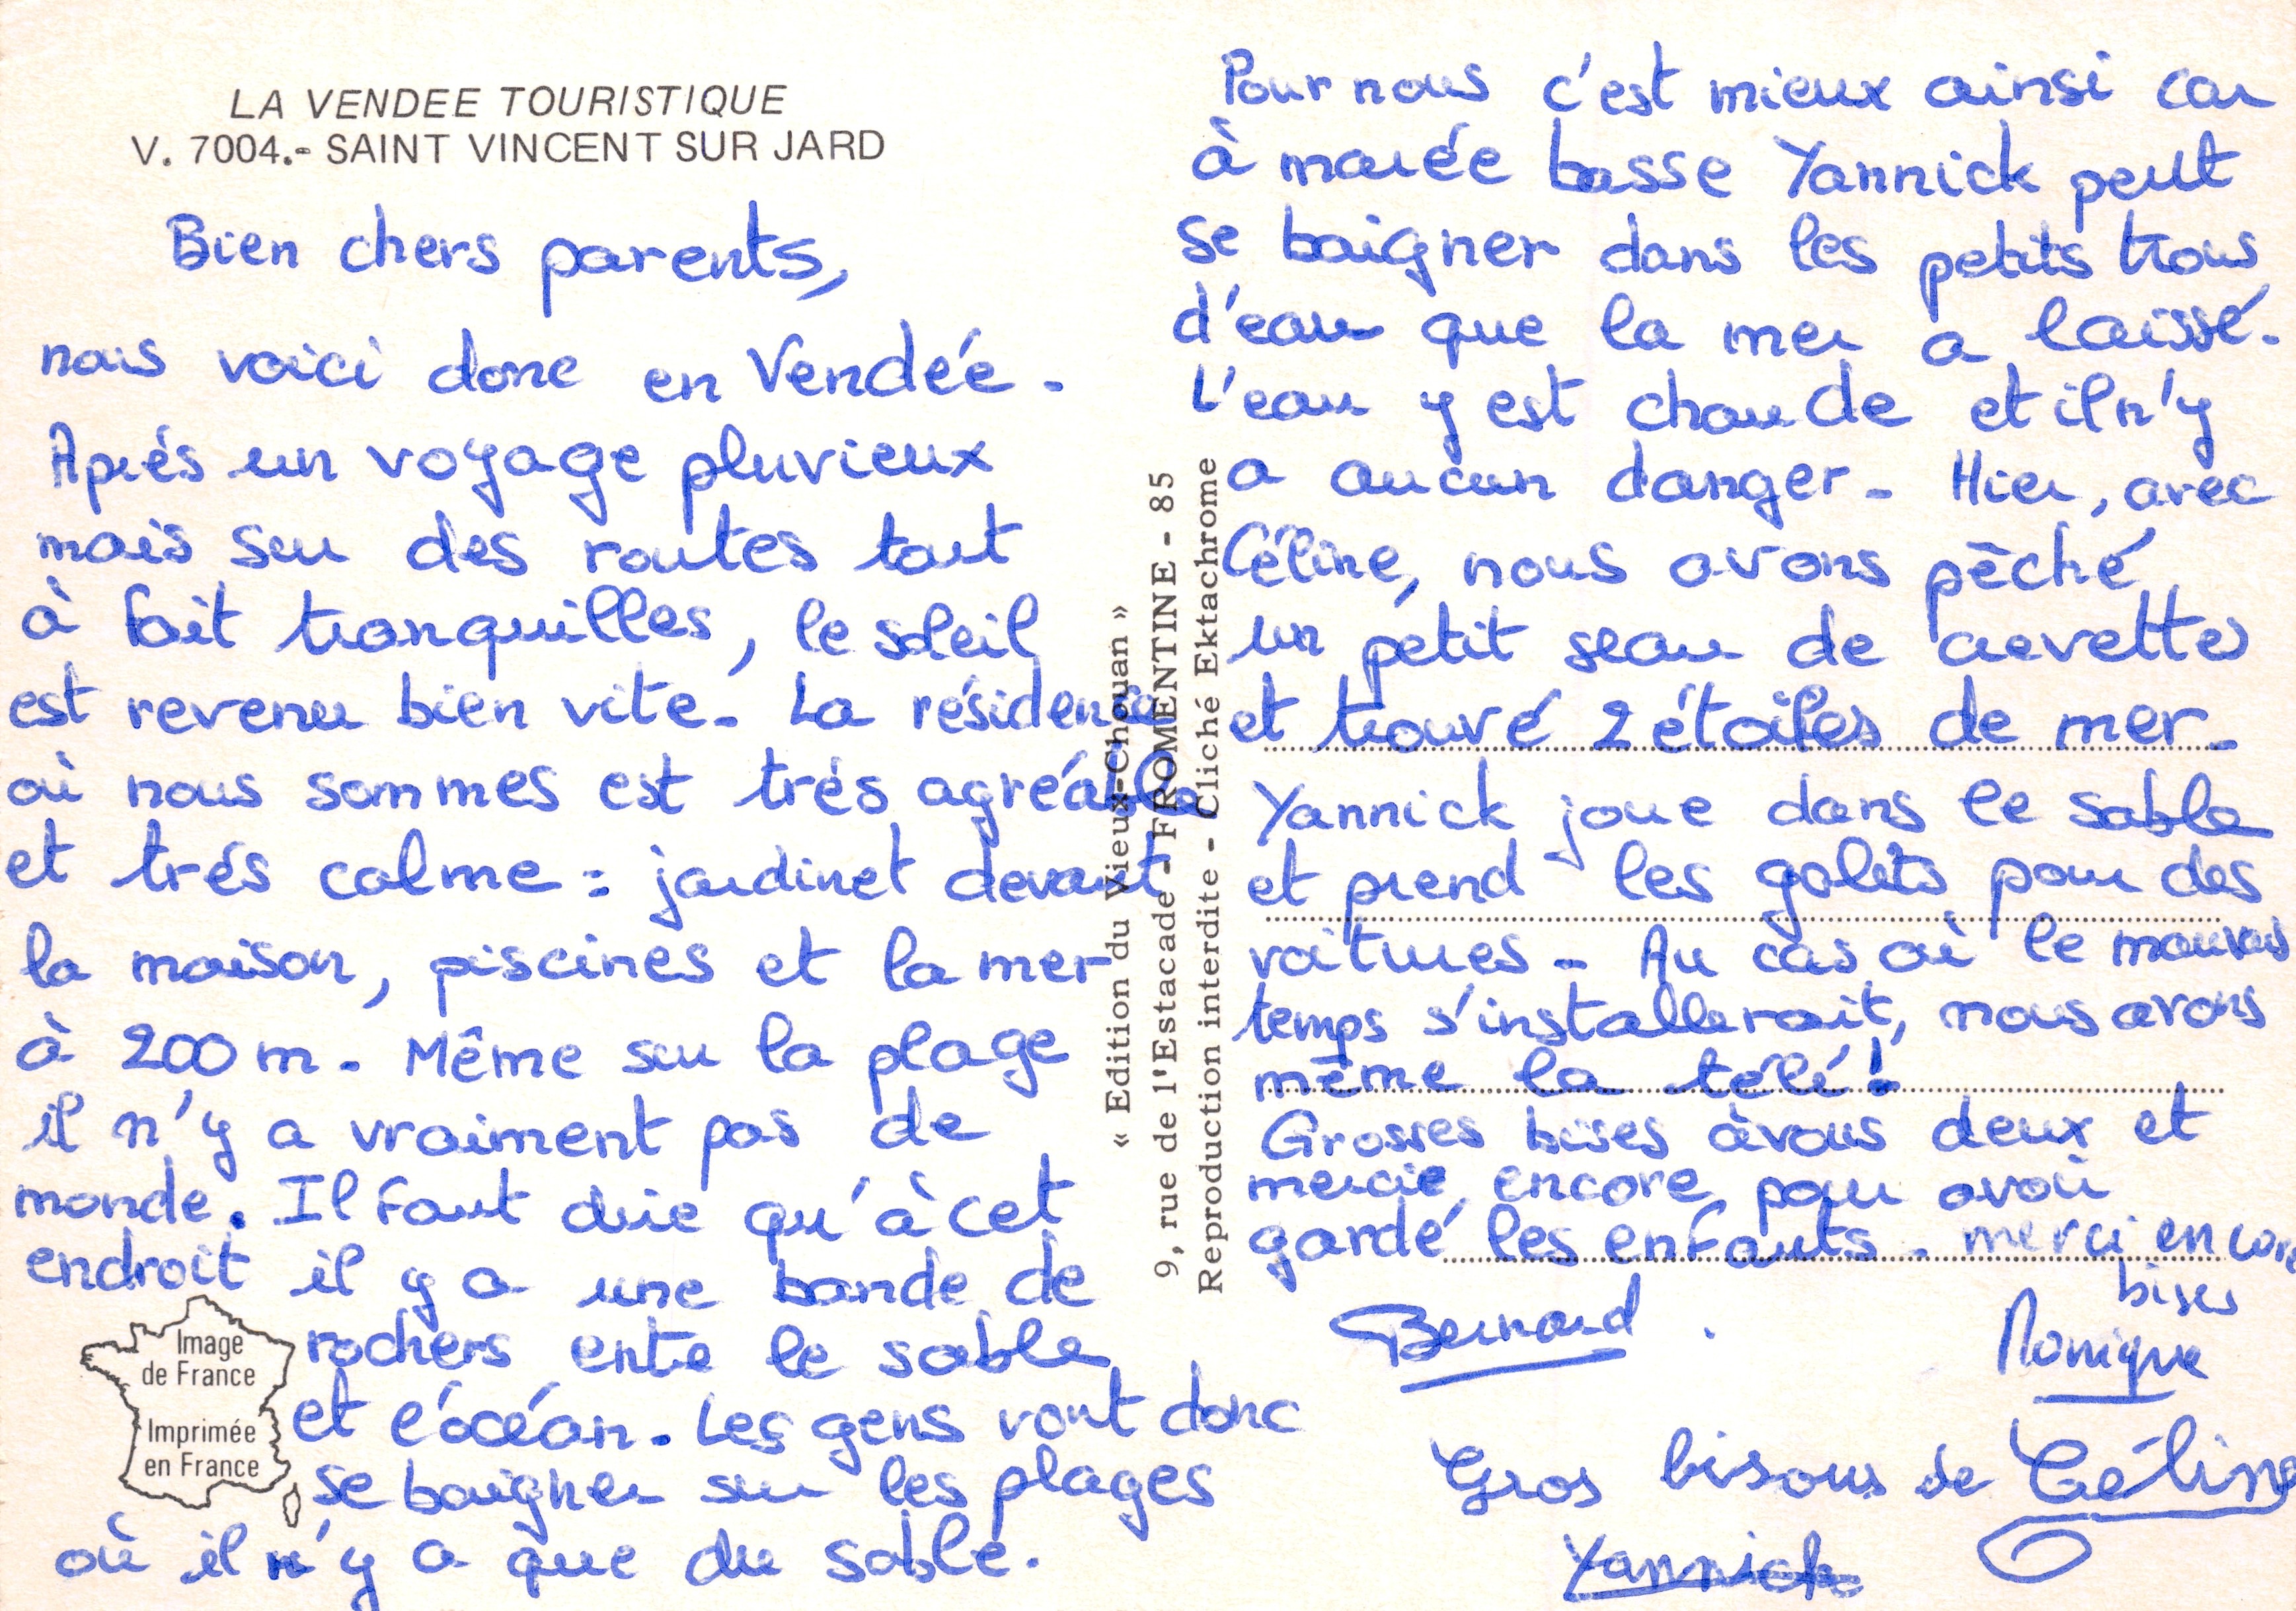 LA VENDEE TOURISTIQUE
V. 7004.- SAINT VINCENT SUR JARD
Bien chers parents,
nous voici donc en Vendée.
Aprés un voyage pluvieux
mais sur des routes tout
à fait tranquilles, le soleil
est revenu bien vite. La résidence
où nous sommes est trés agréable
et trés calme : jardinet devant
la maison, piscines et la mer
à 200 m. Même sur la plage
il n'y a vraiment pas de
monde. Il faut dire qu'à cet
endroit il y a une bande de
rochers ente le sable
et l'océan. Les gens vont donc
se baigner sur les plages
où il n'y a que du sable.
Image
de France
Imprimée
en France
« Edition du Vieux-Chouan »
9, rue de l'Estacade - FROMENTINE - 85
Reproduction interdite - Cliché Ektachrome
Pour nous c'est mieux ainsi car
à marée basse Yannick peut
se baigner dans les petits trous
d'eau que la mer a laissé.
L'eau y est chaude et il n'y
a aucun danger - Hier, avec
Céline, nous avons pêché
un petit seau de crevettes
et trouvé 2 étoiles de mer -
Yannick joue dans le sable
et prend les galets pour des
voitures - Au cas où le mauvais
temps s'installerait, nous avons
même la télé !
Grosses bises à vous deux et
mercie encore pour avoir
gardé les enfants - merci encore
bises
Bernard.
Monique
Gros bisous de Céline
Yannick